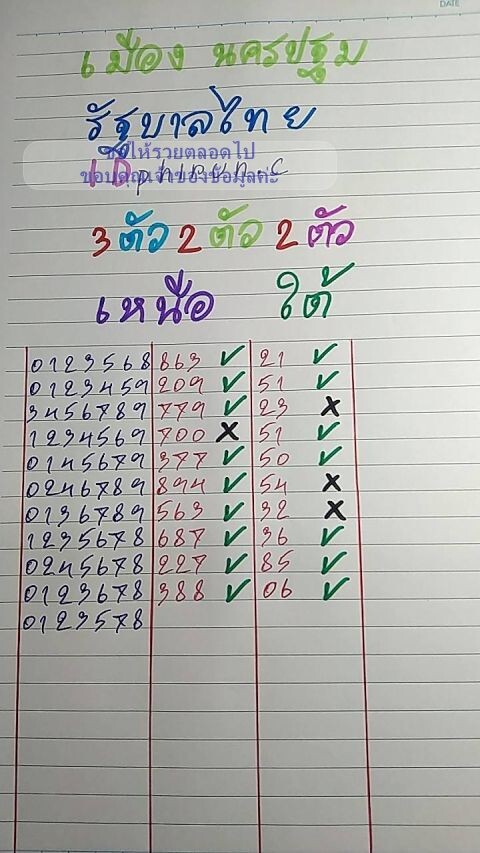 DATE
เมือง นครปฐม
รัฐบาลไทย
ขอให้รวยตลอดไป
ขอบคุณเจ้าของข้อมูลค่ะ
3 ตัว 2 ตัว 2 ตัว
เหนือ ใต้
0123568 863 ✓ 21 ✓
0123459 209 ✓ 51 ✓
3456789 779 ✓ 23 X
1234569 700 X 51 ✓
0145679 377 ✓ 50 ✓
0246789 894 ✓ 54 X
0136789 563 ✓ 32 X
1235678 687 ✓ 36 ✓
0245678 227 ✓ 85 ✓
0123678 388 ✓ 06 ✓
0123578